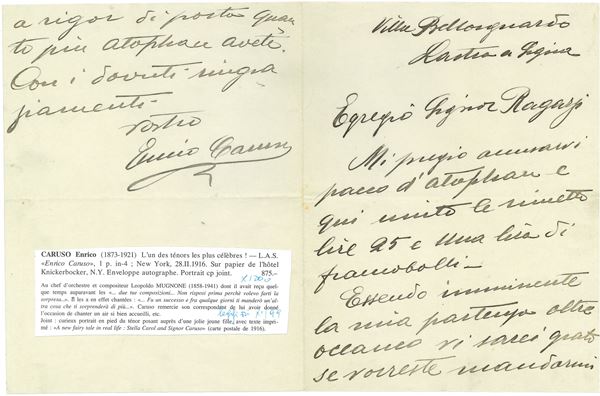 Villa Bellosguardo
Lastra a Signa
Egregio Signor Ragazzi
Mi pregio accusarvi
pacco d'atophan e
qui unito le rimetto
lire 25 e una lira di
francobolli —
Essendo imminente
la mia partenza oltre
oceano vi sarei grato
se vorreste mandarmi
a rigor di posta quan
to più atophan avete.
Con i dovuti ringra
ziamenti.
Vostro
Enrico Caruso
CARUSO Enrico (1873-1921) L'un des ténors les plus célèbres ! — L.A.S.
«Enrico Caruso», 1 p. in-4 ; New York, 28.II.1916. Sur papier de l'hôtel
Knickerbocker, N.Y. Enveloppe autographe. Portrait cp joint. 875.–
Au chef d'orchestre et compositeur Leopoldo MUGNONE (1858-1941) dont il avait reçu quel-
que temps auparavant les «... due tue composizioni... Non risposi prima perchè volevo farti la
sorpresa...». Il les a en effet chantées : «... Fu un successo e fra qualche giorni ti manderò un'al-
tra cosa che ti sorprenderà di più...». Caruso remercie son correspondant de lui avoir donné
l'occasion de chanter un air si bien accueilli, etc.
Joint : curieux portrait en pied du ténor posant auprès d'une jolie jeune fille, avec texte impri-
mé : «A new fairy tale in real life : Stella Carol and Signor Caruso» (carte postale de 1916).